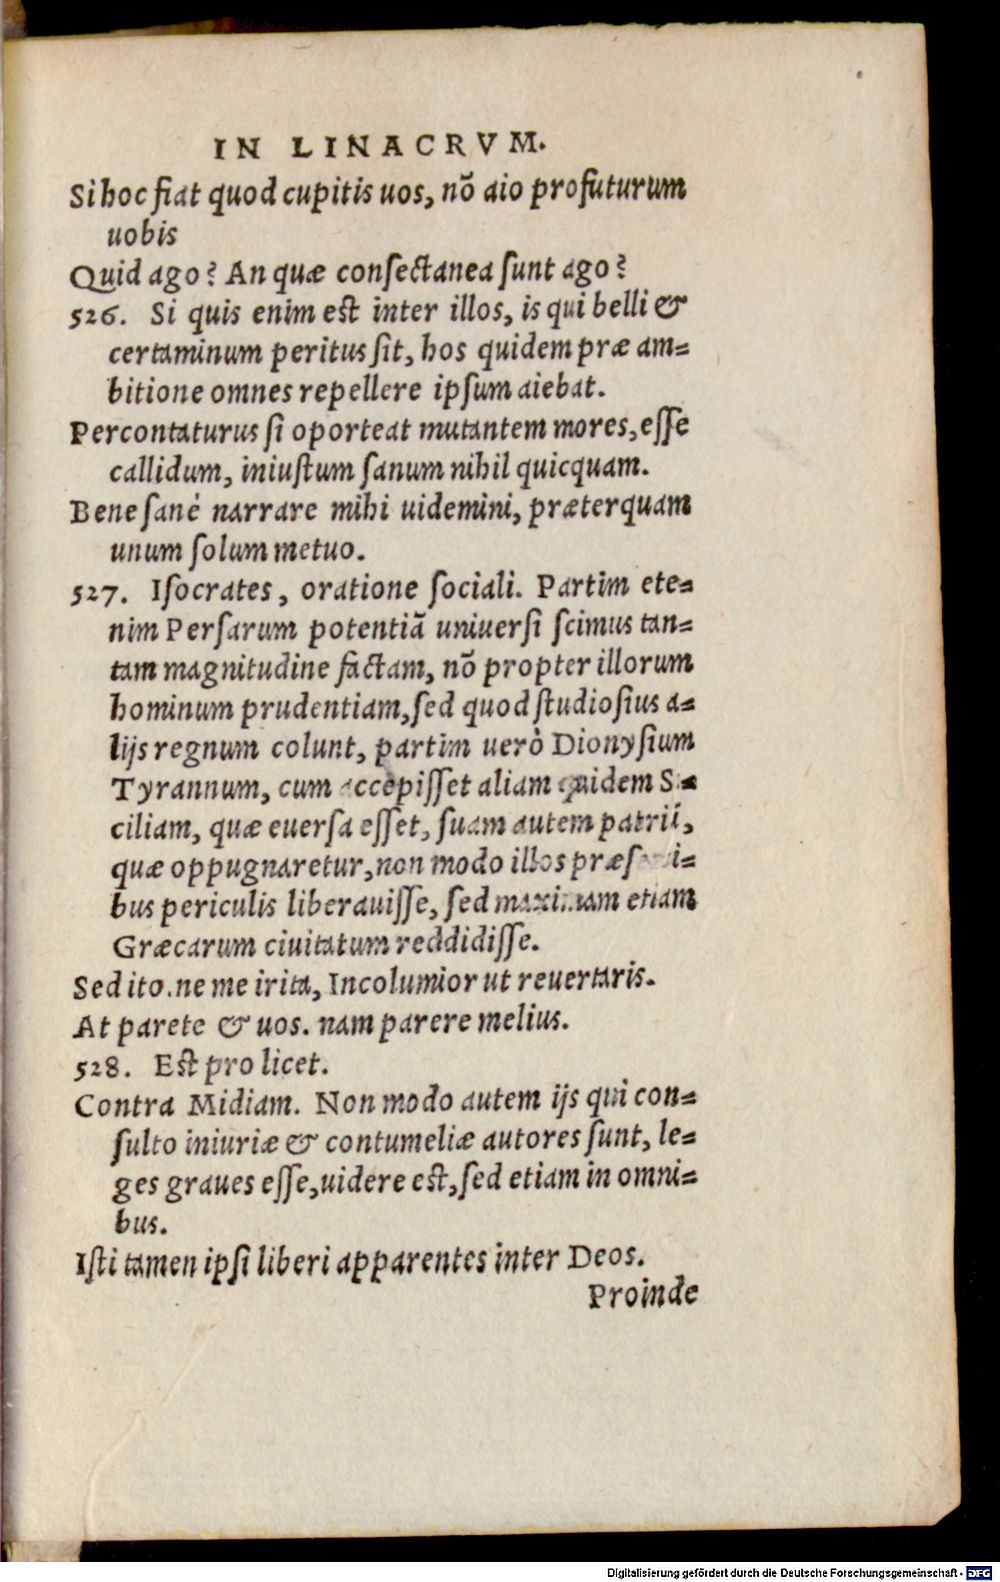 IN LINACRVM.
Si hoc fiat quod cupitis uos, nõ aio profuturum
uobis
Quid ago? An quæ consectanea sunt ago?
526. Si quis enim est inter illos, is qui belli &
certaminum peritus sit, hos quidem præ am=
bitione omnes repellere ipsum aiebat.
Percontaturus si oporteat mutantem mores, esse
callidum, iniustum sanum nihil quicquam.
Bene sanè narrare mihi uidemini, præterquam
unum solum metuo.
527. Isocrates, oratione sociali. Partim ete=
nim Persarum potentiã uniuersi scimus tan=
tam magnitudine factam, nõ propter illorum
hominum prudentiam, sed quod studiosius a=
lijs regnum colunt, partim uerò Dionysium
Tyrannum, cum accepisset aliam quidem Si=
ciliam, quæ euersa esset, suam autem patriã,
quæ oppugnaretur, non modo illos præsenti=
bus periculis liberauisse, sed maximam etiam
Græcarum ciuitatum reddidisse.
Sed ito. ne me irita, Incolumior ut reuertaris.
At parete & uos. nam parere melius.
528. Est pro licet.
Contra Midiam. Non modo autem ijs qui con=
sulto iniuriæ & contumeliæ autores sunt, le=
ges graues esse, uidere est, sed etiam in omni=
bus.
Isti tamen ipsi liberi apparentes inter Deos.
Proinde
Digitalisierung gefördert durch die Deutsche Forschungsgemeinschaft - DFG